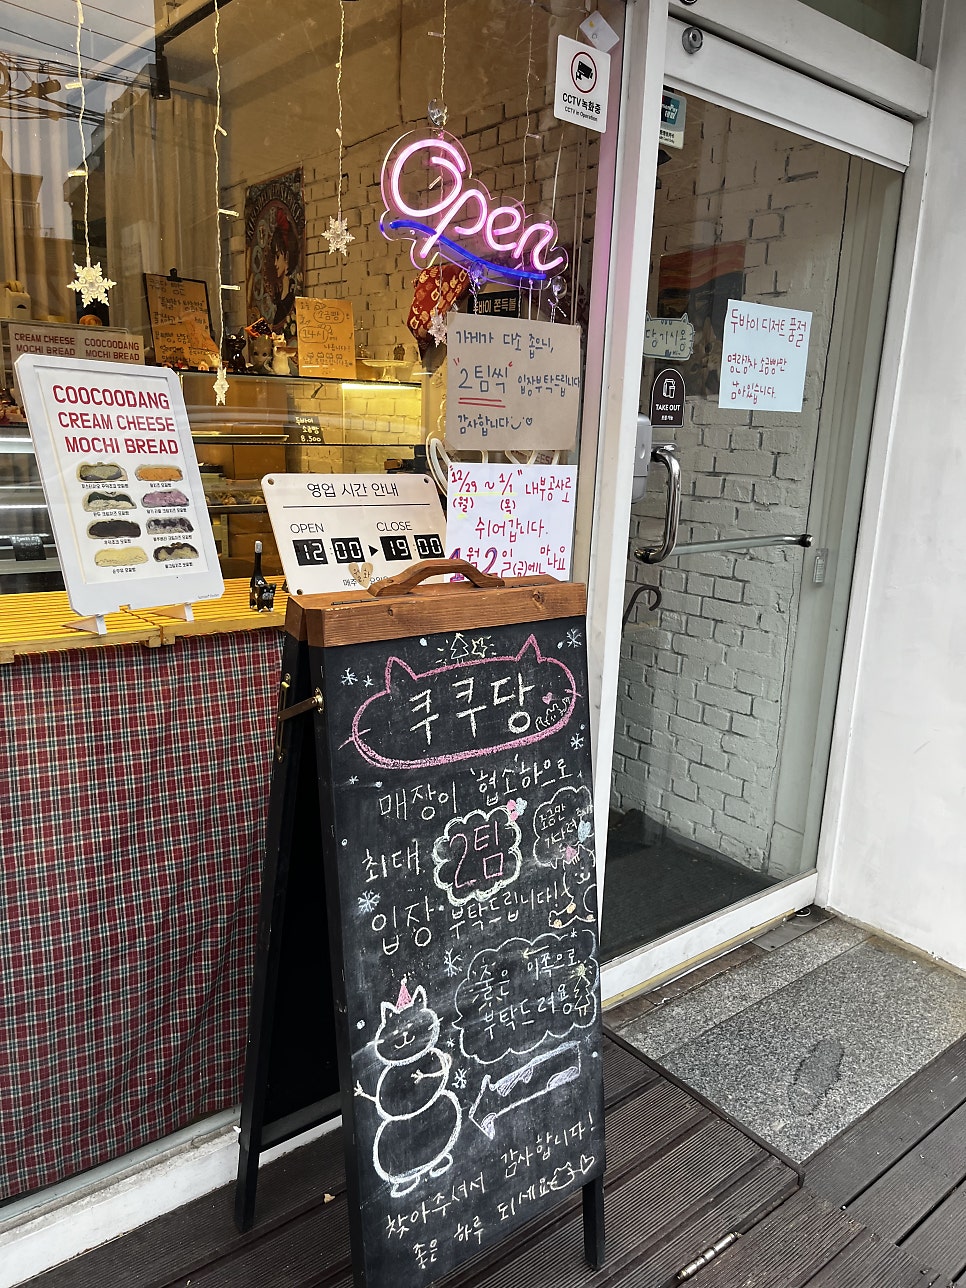 CCTV 녹화중
CCTV in Operation
Open
CREAM CHEESE
MOCHI BREAD
COOCOODANG
MOCHI BREAD
COOCOODANG
CREAM CHEESE
MOCHI BREAD
두바이 쫀득볼
가게가 다소 좁으니,
"2팀씩" 입장부탁드립니다
감사합니다
두바이
소금빵
8,500
영업 시간 안내
OPEN
CLOSE
12:00 ▶ 19:00
"12/29 ~ 1/1" 내부공사로
(월) (목)
쉬어갑니다.
1월 2일(금)에 만나요
당기시용
TAKE OUT
두바이 디저트 품절
명란감자 소금빵만
남아있습니다.
쿠쿠당
매장이 '협소'하으로
최대 2팀
조금만
입장 부탁드립니다!
줄은 이쪽으로
부탁드려용
찾아주셔서 감사합니다!
좋은 하루 되세요